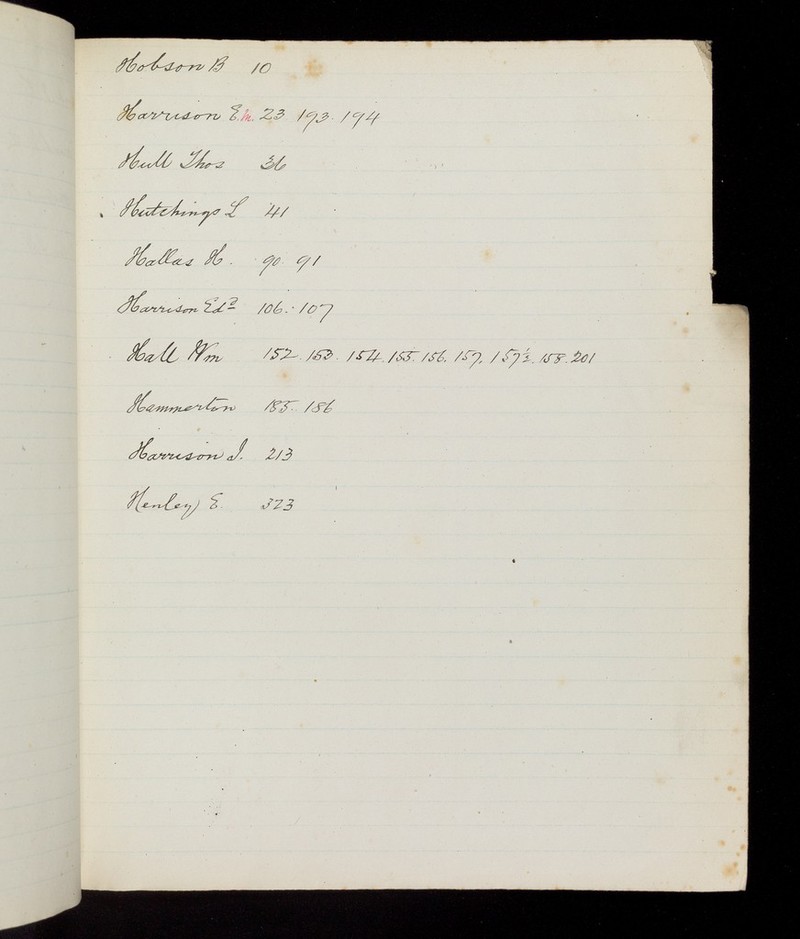 Hobson B 10
Harrison E.m. 23. 193. 194
Hull Thos 36
Hutchings L 41
Hallas H. 90. 91
Harrison Edd 106. 107
Hall Wm 152. 153. 154. 155. 156. 157. 157½. 158. 201
Hammerton 185. 186
Harrison J. 213
Henley E. 323